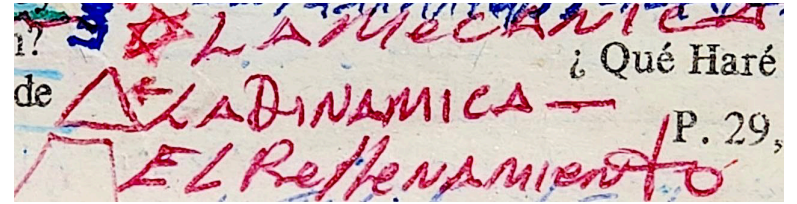 n? LA MECANICA
¿ Qué Haré
de LA DINAMICA —
P. 29,
EL RellenAMiento